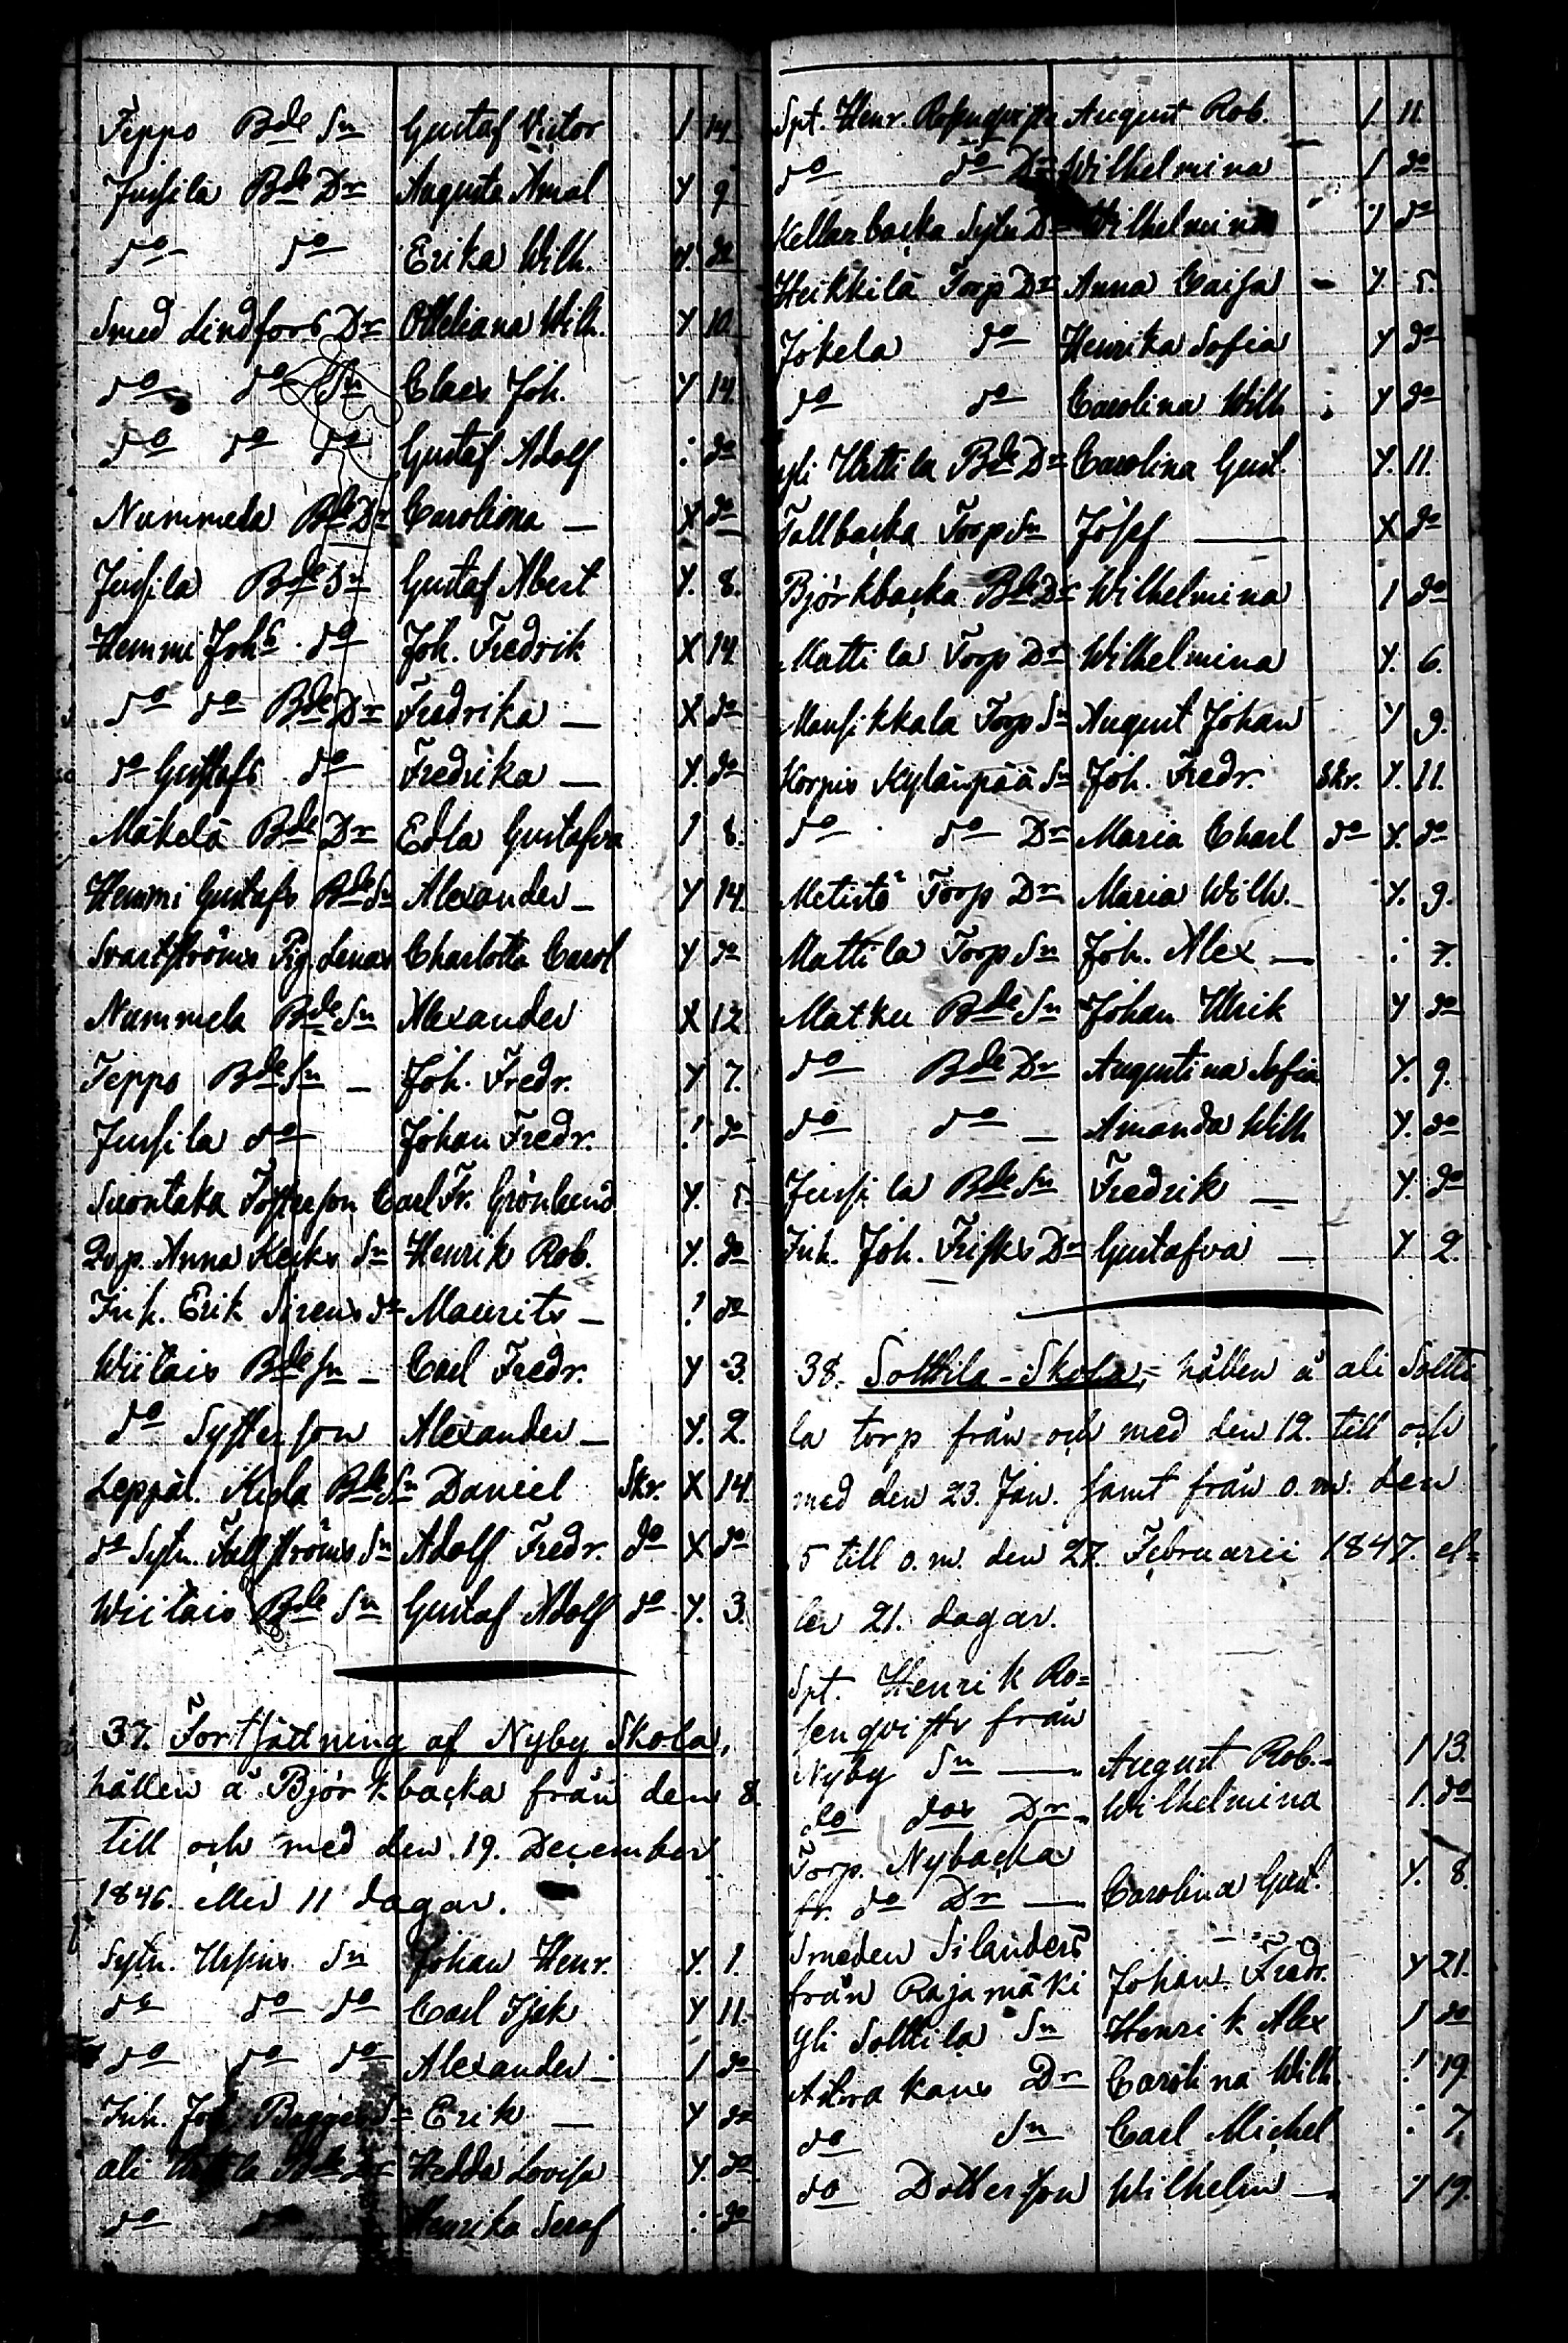 Teppo Bde Sn Gustaf Victor 1 14.
Jussila Bde Dr Augusta Amal Y 9
do do Erika Wilh. Y. do
Smed Lindfors Dr Otteliana Wilh. Y 10.
do do Sn Claes Joh. Y 14.
do do do Gustaf Adolf : do
Nummela Bde Dr Carolina — X do
Jussila Bde Sn Gustaf Albert Y. 8.
Hemmi Johs. do Joh. Fredrik X 14.
do do Bde Dr Fredrika — X do
do Gustafs do Fredrika — Y. do
Mäkelä Bde Dr Edla Gustafva 1 8.
Hemmi Gustafs Bde Sn Alexander — Y 14.
Svartströms Pig. Lenas Charlotta Carol Y do
Nummela Bde Sn Alexander X 12.
Teppo Bde Sn — Joh. Fredr. Y 7.
Jussila do Johan Fredr. ! do
Suontaka Fosterson Carl Fr. Grönlund Y. 5.
Qvp. Anna Keckes Sn Henrik Rob. Y. do
Inh. Erik Sirens do Maurits — ! do
Wiitais Bde Sn — Carl Fredr. Y 3.
do Systerson Alexander — Y. 2.
Leppäl. Kisla Bde Sn Daniel Skr. X 14.
do Sytn. Fallströms Sn Adolf Fredr. do X do
Wiitais Bde Sn Gustaf Adolf do Y. 3.
37. Fortsättning af Nyby Skola,
hållen å Björkbacka från den 8.
till och med den 19. December
1846. eller 11 dagar.
Sytn. Sn Johan Henr. Y. 1.
do do do Carl Isak Y 11.
do do do Alexander — 1 do
Inh. Joh. Baggers Sn Erik — Y do
ali Uttila Bde Dr Hedda Lovisa Y. do
do do Henrika Seraf : do
Spt. Henr. Rosenqvists August Rob. 1. 11.
do do Dr Wilhelmina 1 do
Kellarbacka Sytn Dr Wilhelmina 1 do
Heikkilä Torp Dr Anna Caisa — Y 5.
Jokela do Henrika Sofia Y do
do do Carolina Wilh. Y do
yli Uttila Bde Dr Carolina Gust. Y. 11.
Tallbacka Torp Sn Josef — X do
Björkbacka Bde Dr Wilhelmina 1 do
Mattila Torp Dr Wilhelmina Y. 6.
Mansikkala Torp Sn August Johan Y 9.
Korpis Kylänpää Sn Joh. Fredr. Skr. Y. 11.
do do Dr Maria Charl do Y. do
Metistö Torp Dr Maria Wilh. Y. 9.
Mattila Torp Sn Joh. Alex — : 7.
Matku Bde Sn Johan Ulrik Y do
do Bde Dr Augustina Sofia Y. 9.
do do — Amanda Wilh Y. do
Jussila Bde Sn Fredrik — Y. do
Inh. Joh. Frisks Dr Gustafva — Y 2.
38. Solttila-Skola, hållen å ali Soltti
la torp från och med den 12. till och
med den 23. Jan. samt från o.m. den
15 till o.m. den 27. Februarii 1847. el=
ler 21. dagar.
Spt. Henrik Ro=
senqvists från
Nyby Sn — August Rob. — 1 13.
do dos Dr — Wilhelmina 1. do
Torp. Nybacka
fr. do Dr — Carolina Gust. Y. 8.
Smeden Silanders
från Rajamäki Johan Fredr. Y 21.
yli Solttila Sn Henrik Alex 1 do
Dr Carolina Wilh. ! 19.
do Sn Carl Michel : 7.
do Dotterson Wilhelm — 1 19.